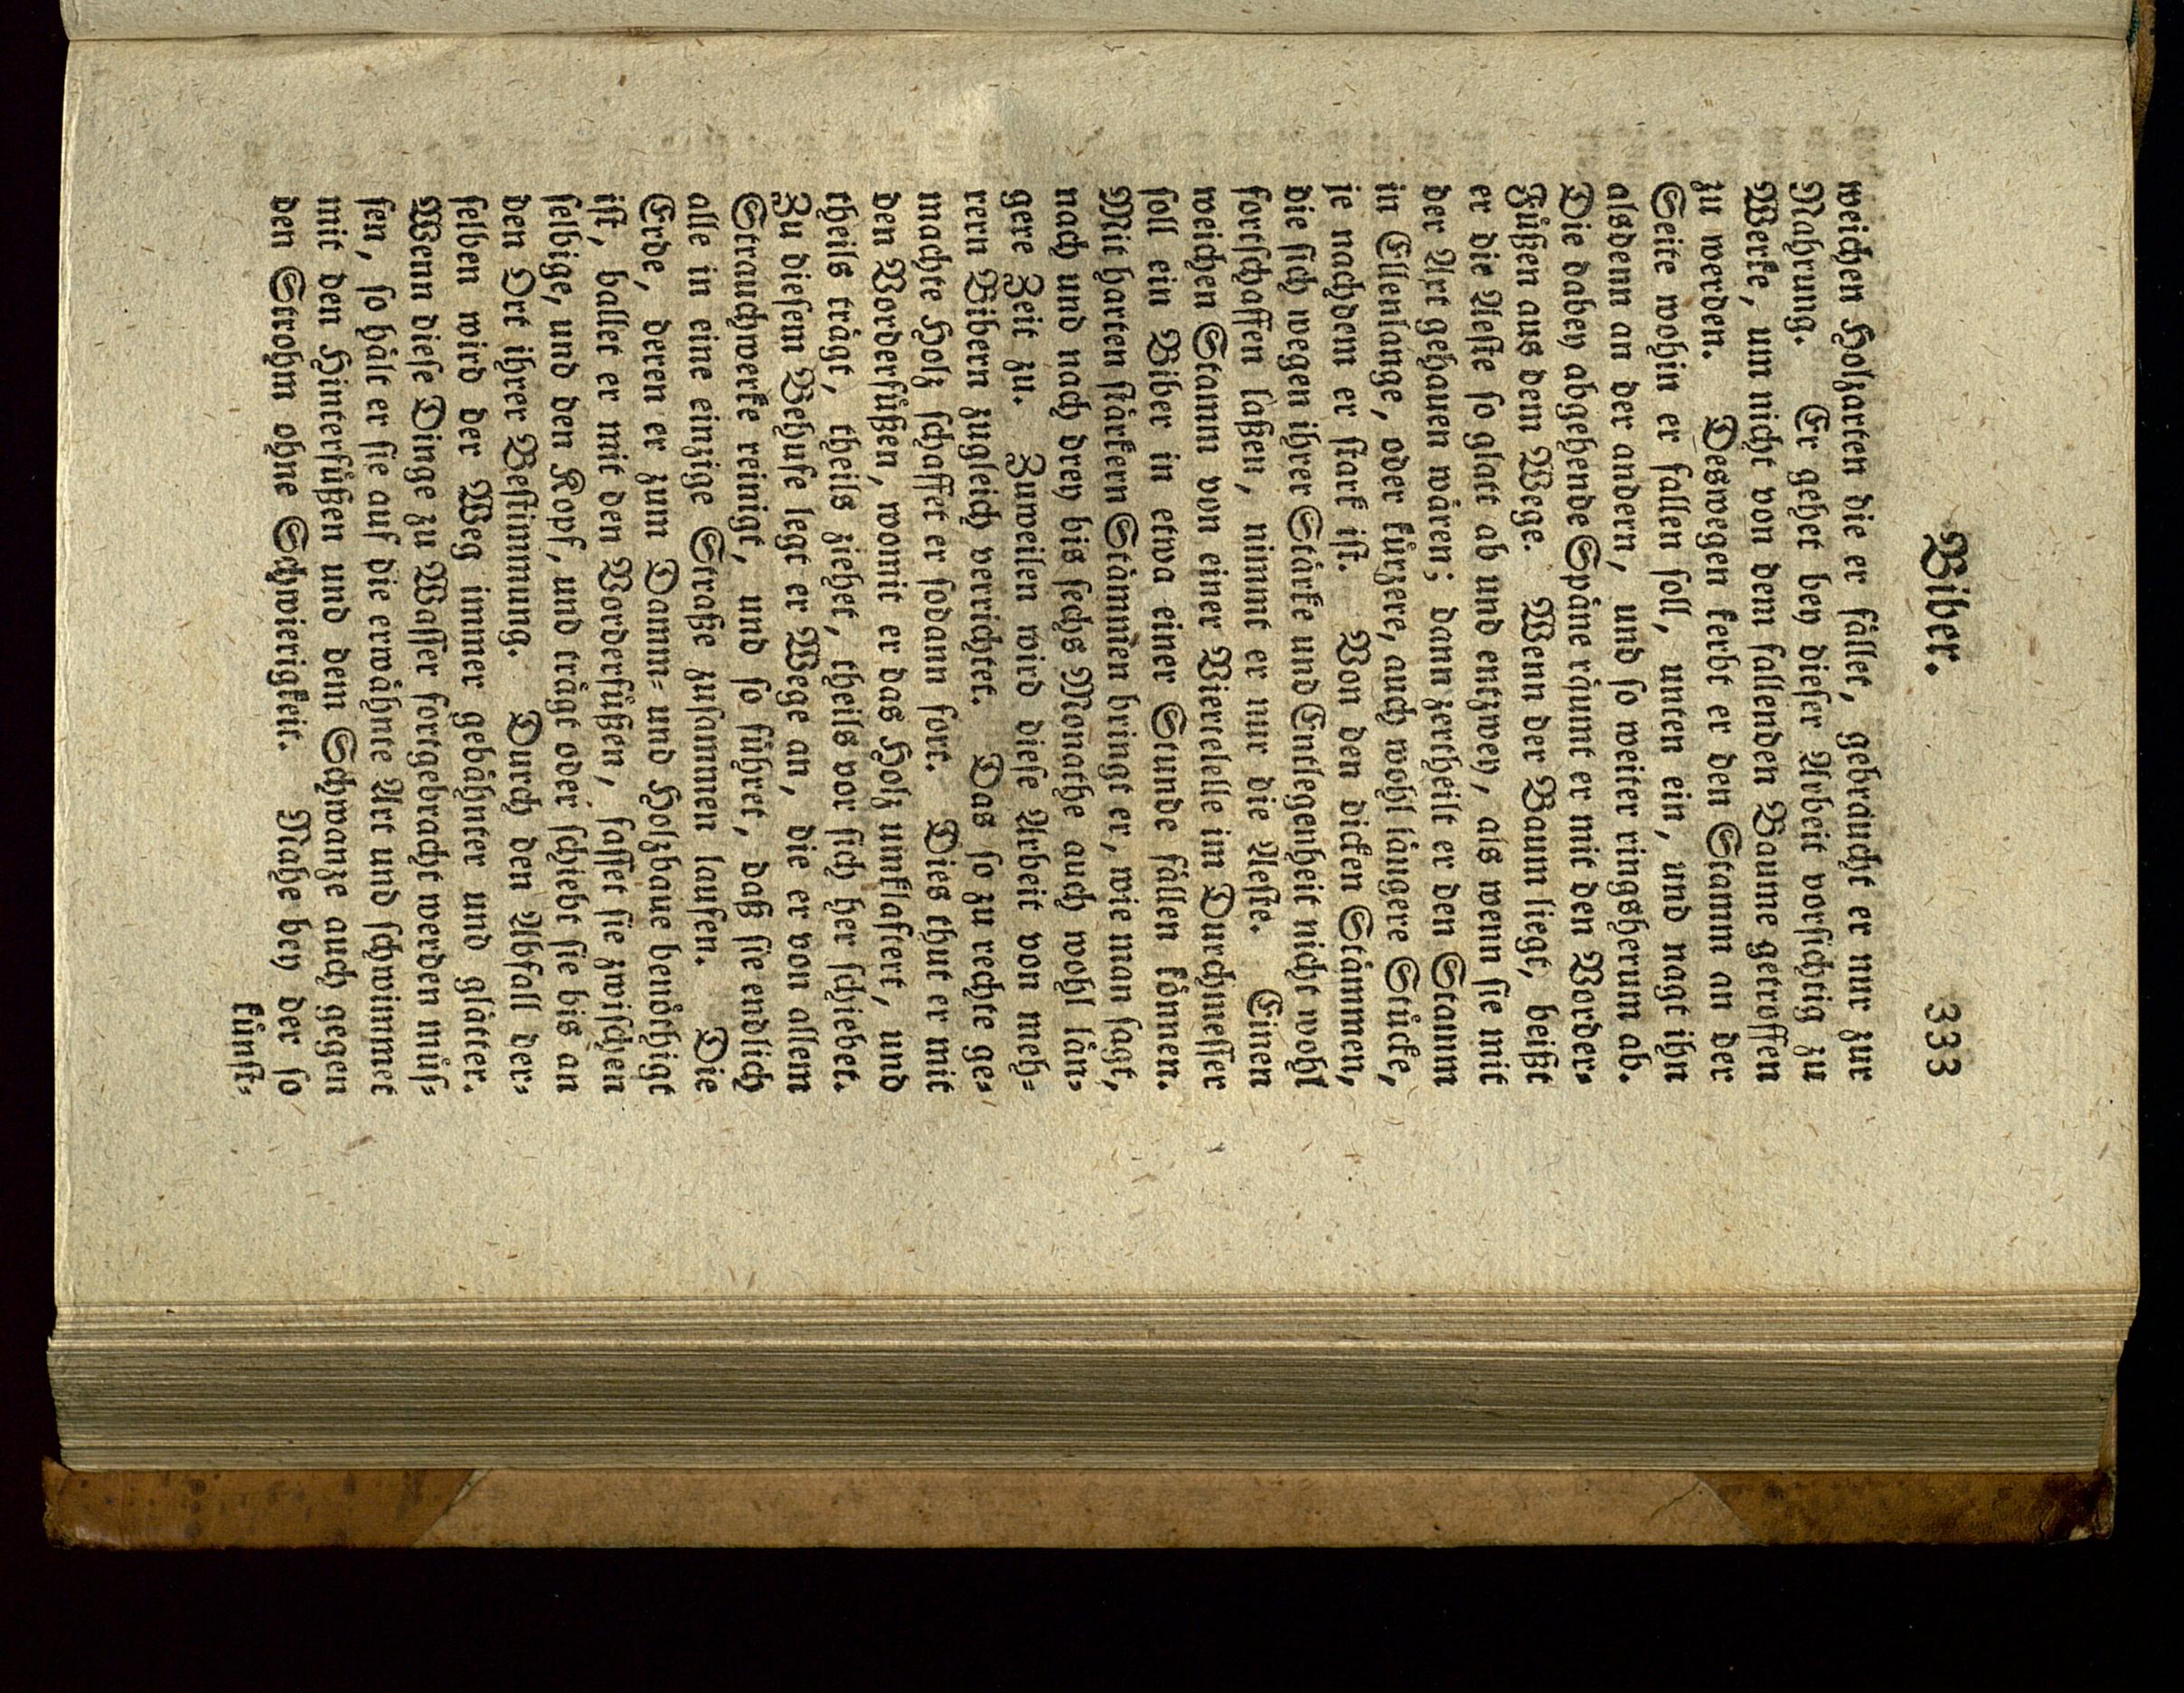 Biber. 333
weichen Holzarten die er fället, gebraucht er nur zur
Nahrung. Er gehet bey dieser Arbeit vorsichtig zu
Werke, um nicht von dem fallenden Baume getroffen
zu werden. Deswegen kerbt er den Stamm an der
Seite wohin er fallen soll, unten ein, und nagt ihn
alsdenn an der andern, und so weiter ringsherum ab.
Die dabey abgehende Späne räumt er mit den Vorder-
Füßen aus dem Wege. Wenn der Baum liegt, beißt
er die Aeste so glatt ab und entzwey, als wenn sie mit
der Axt gehauen wären; dann zertheilt er den Stamm
in Ellenlange, oder kürzere, auch wohl längere Stücke,
je nachdem er stark ist. Von den dicken Stämmen,
die sich wegen ihrer Stärke und Entlegenheit nicht wohl
fortschaffen laßen, nimmt er nur die Aeste. Einen
weichen Stamm von einer Viertelelle im Durchmesser
soll ein Biber in etwa einer Stunde fällen können.
Mit harten stärkern Stämmen bringt er, wie man sagt,
nach und nach drey bis sechs Monathe auch wohl län-
gere Zeit zu. Zuweilen wird diese Arbeit von meh-
rern Bibern zugleich verrichtet. Das so zu rechte ge-
machte Holz schaffet er sodann fort. Dies thut er mit
den Vorderfüßen, womit er das Holz umklaftert, und
theils trägt, theils ziehet, theils vor sich her schiebet.
Zu diesem Behufe legt er Wege an, die er von allem
Strauchwerke reinigt, und so führet, daß sie endlich
alle in eine einzige Straße zusammen laufen. Die
Erde, deren er zum Damm- und Holzbaue benöthigt
ist, ballet er mit den Vorderfüßen, fasset sie zwischen
selbige, und den Kopf, und trägt oder schiebt sie bis an
den Ort ihrer Bestimmung. Durch den Abfall der-
selben wird der Weg immer gebähnter und glätter.
Wenn diese Dinge zu Wasser fortgebracht werden müs-
sen, so hält er sie auf die erwähnte Art und schwimmet
mit den Hinterfüßen und dem Schwanze auch gegen
den Strohm ohne Schwierigkeit. Nahe bey der so
künst-